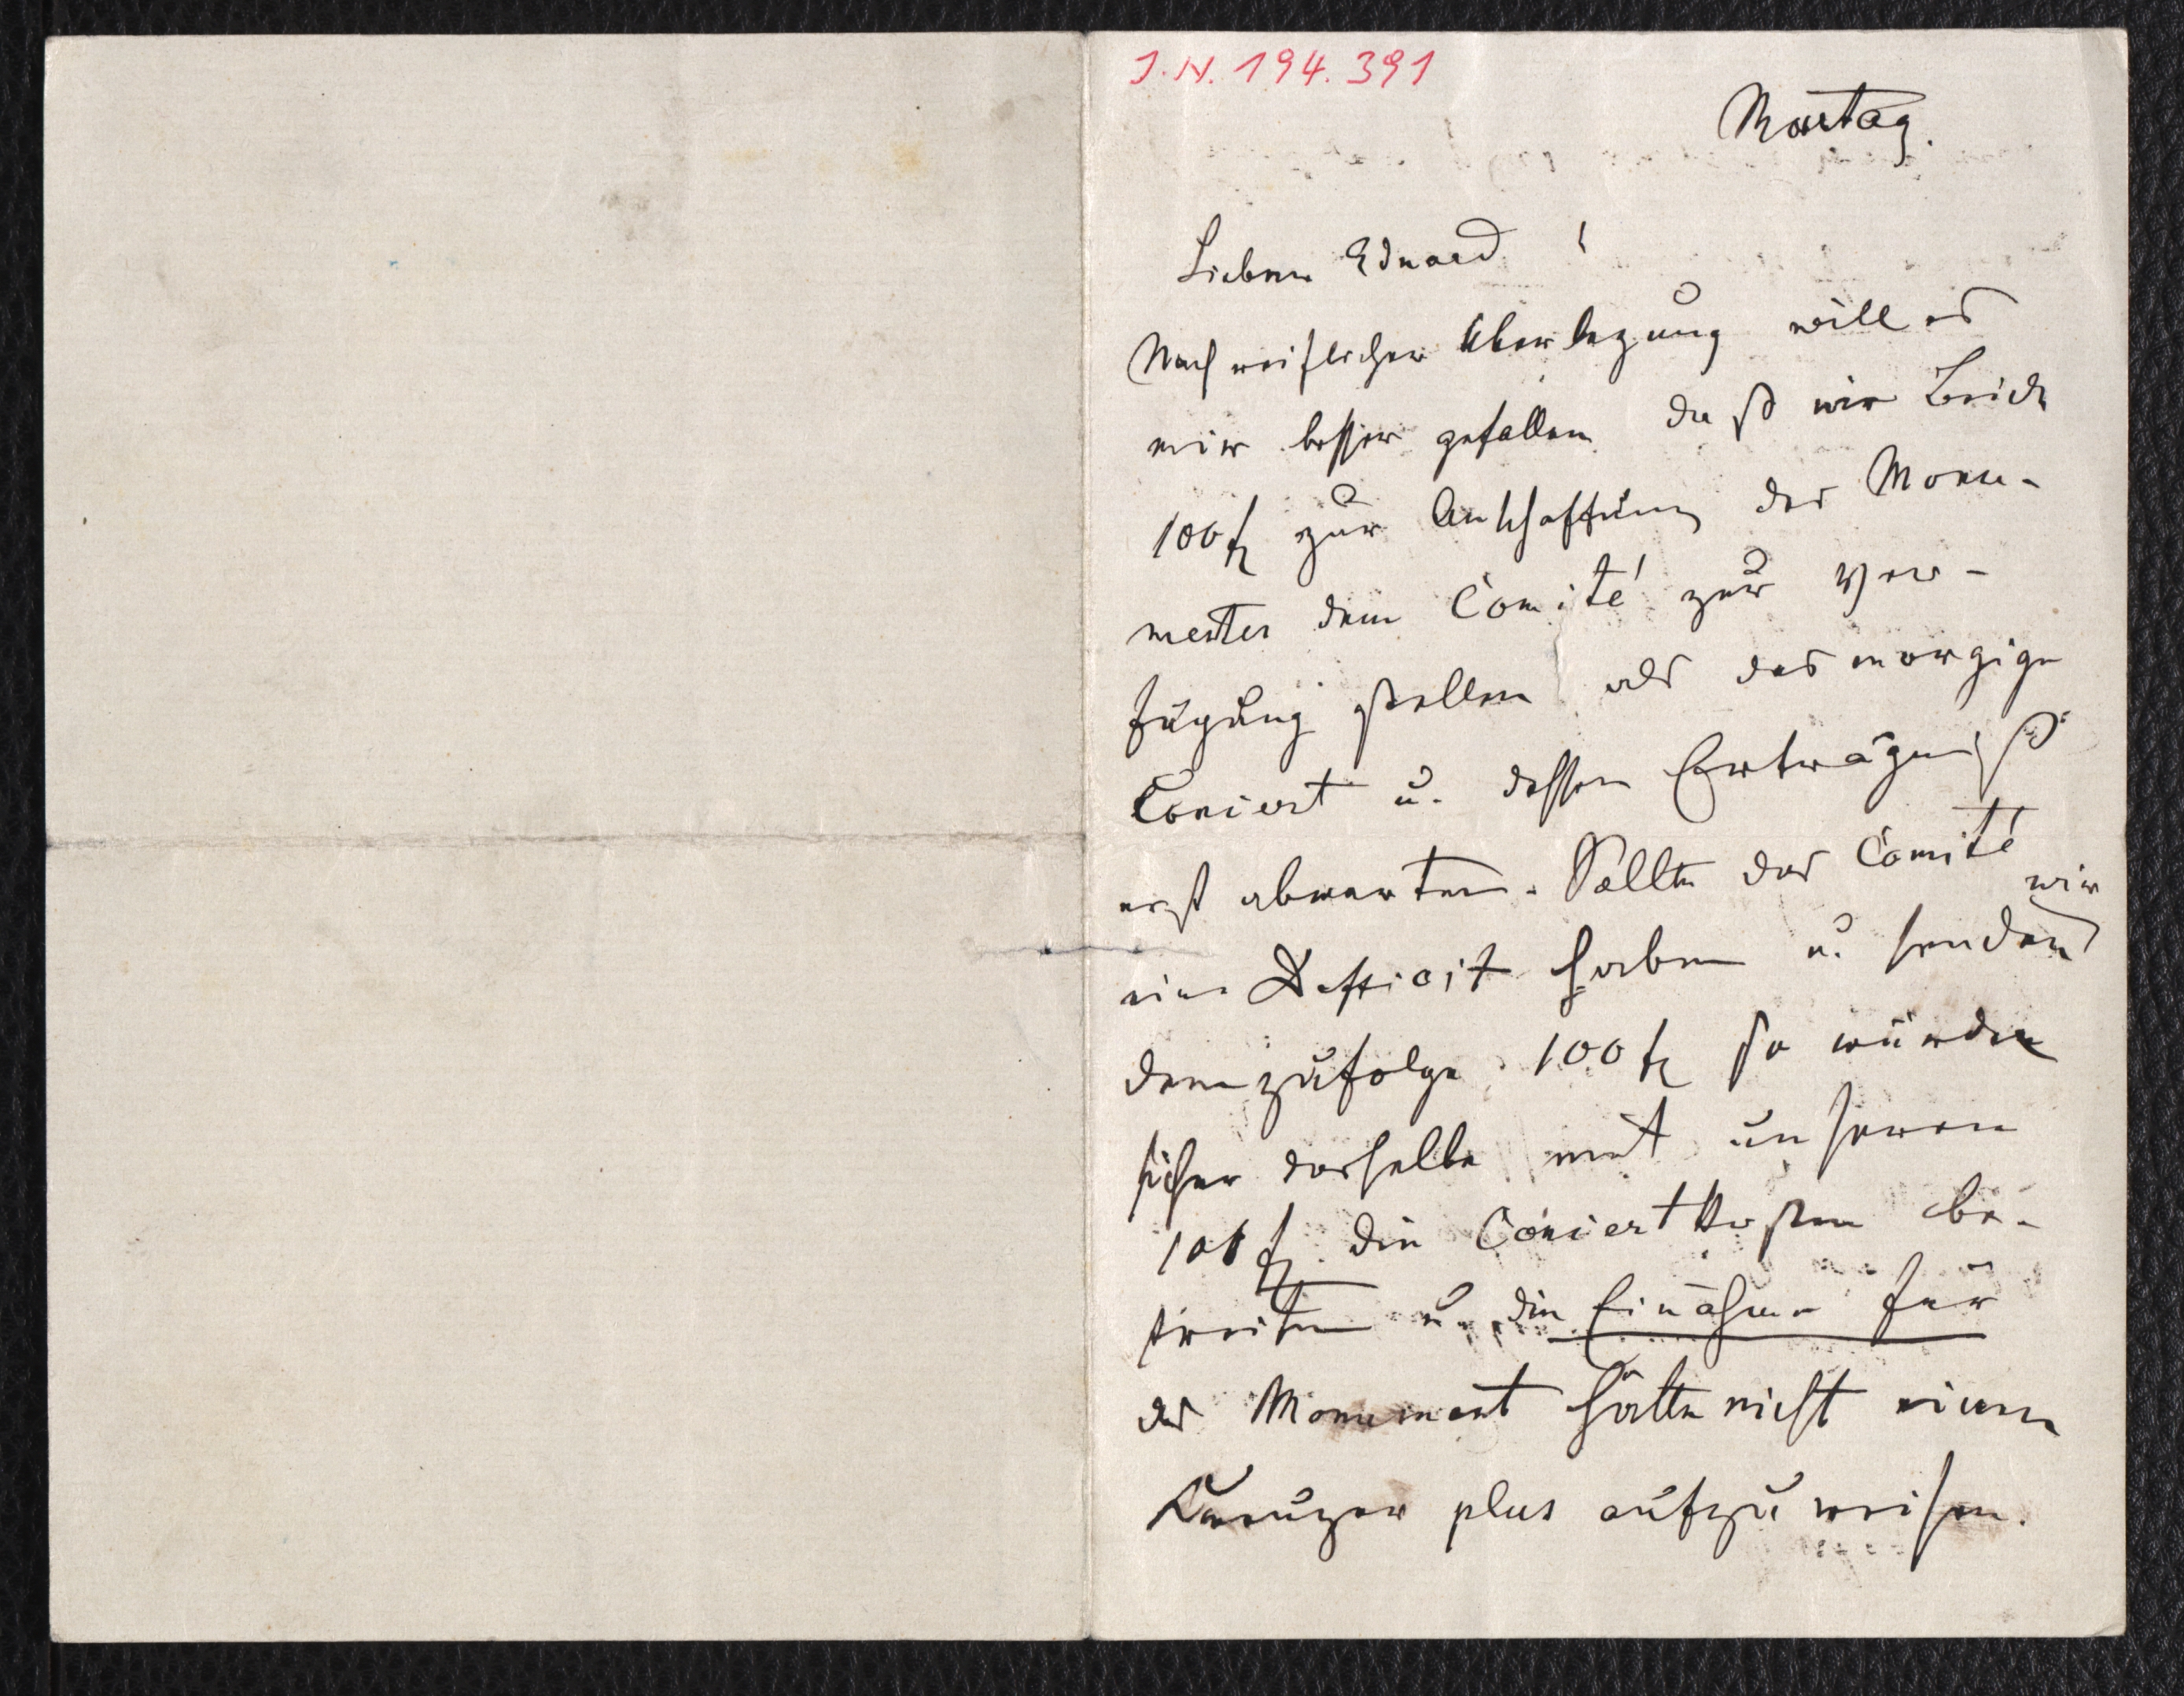 J.N. 194.391
Montag.
Lieber Eduard !
Nach reiflicher Überlegung will es
mir besser gefallen daß wir Beide
100 fl zur Anschaffung des Monu-
mentes dem Comité zur Ver-
fügung stellen als das morgige
Concert u. dessen Erträgniß
erst abwarten. Sollte das Comité
wir
ein Defficit haben u. senden
demzufolge 100 fl so würde
sicher dasselbe mit unseren
100 fl die Concertkosten be-
streiten u. die Einahme für
das Monument hätte nicht einen
Kreuzer plus aufzuweisen.